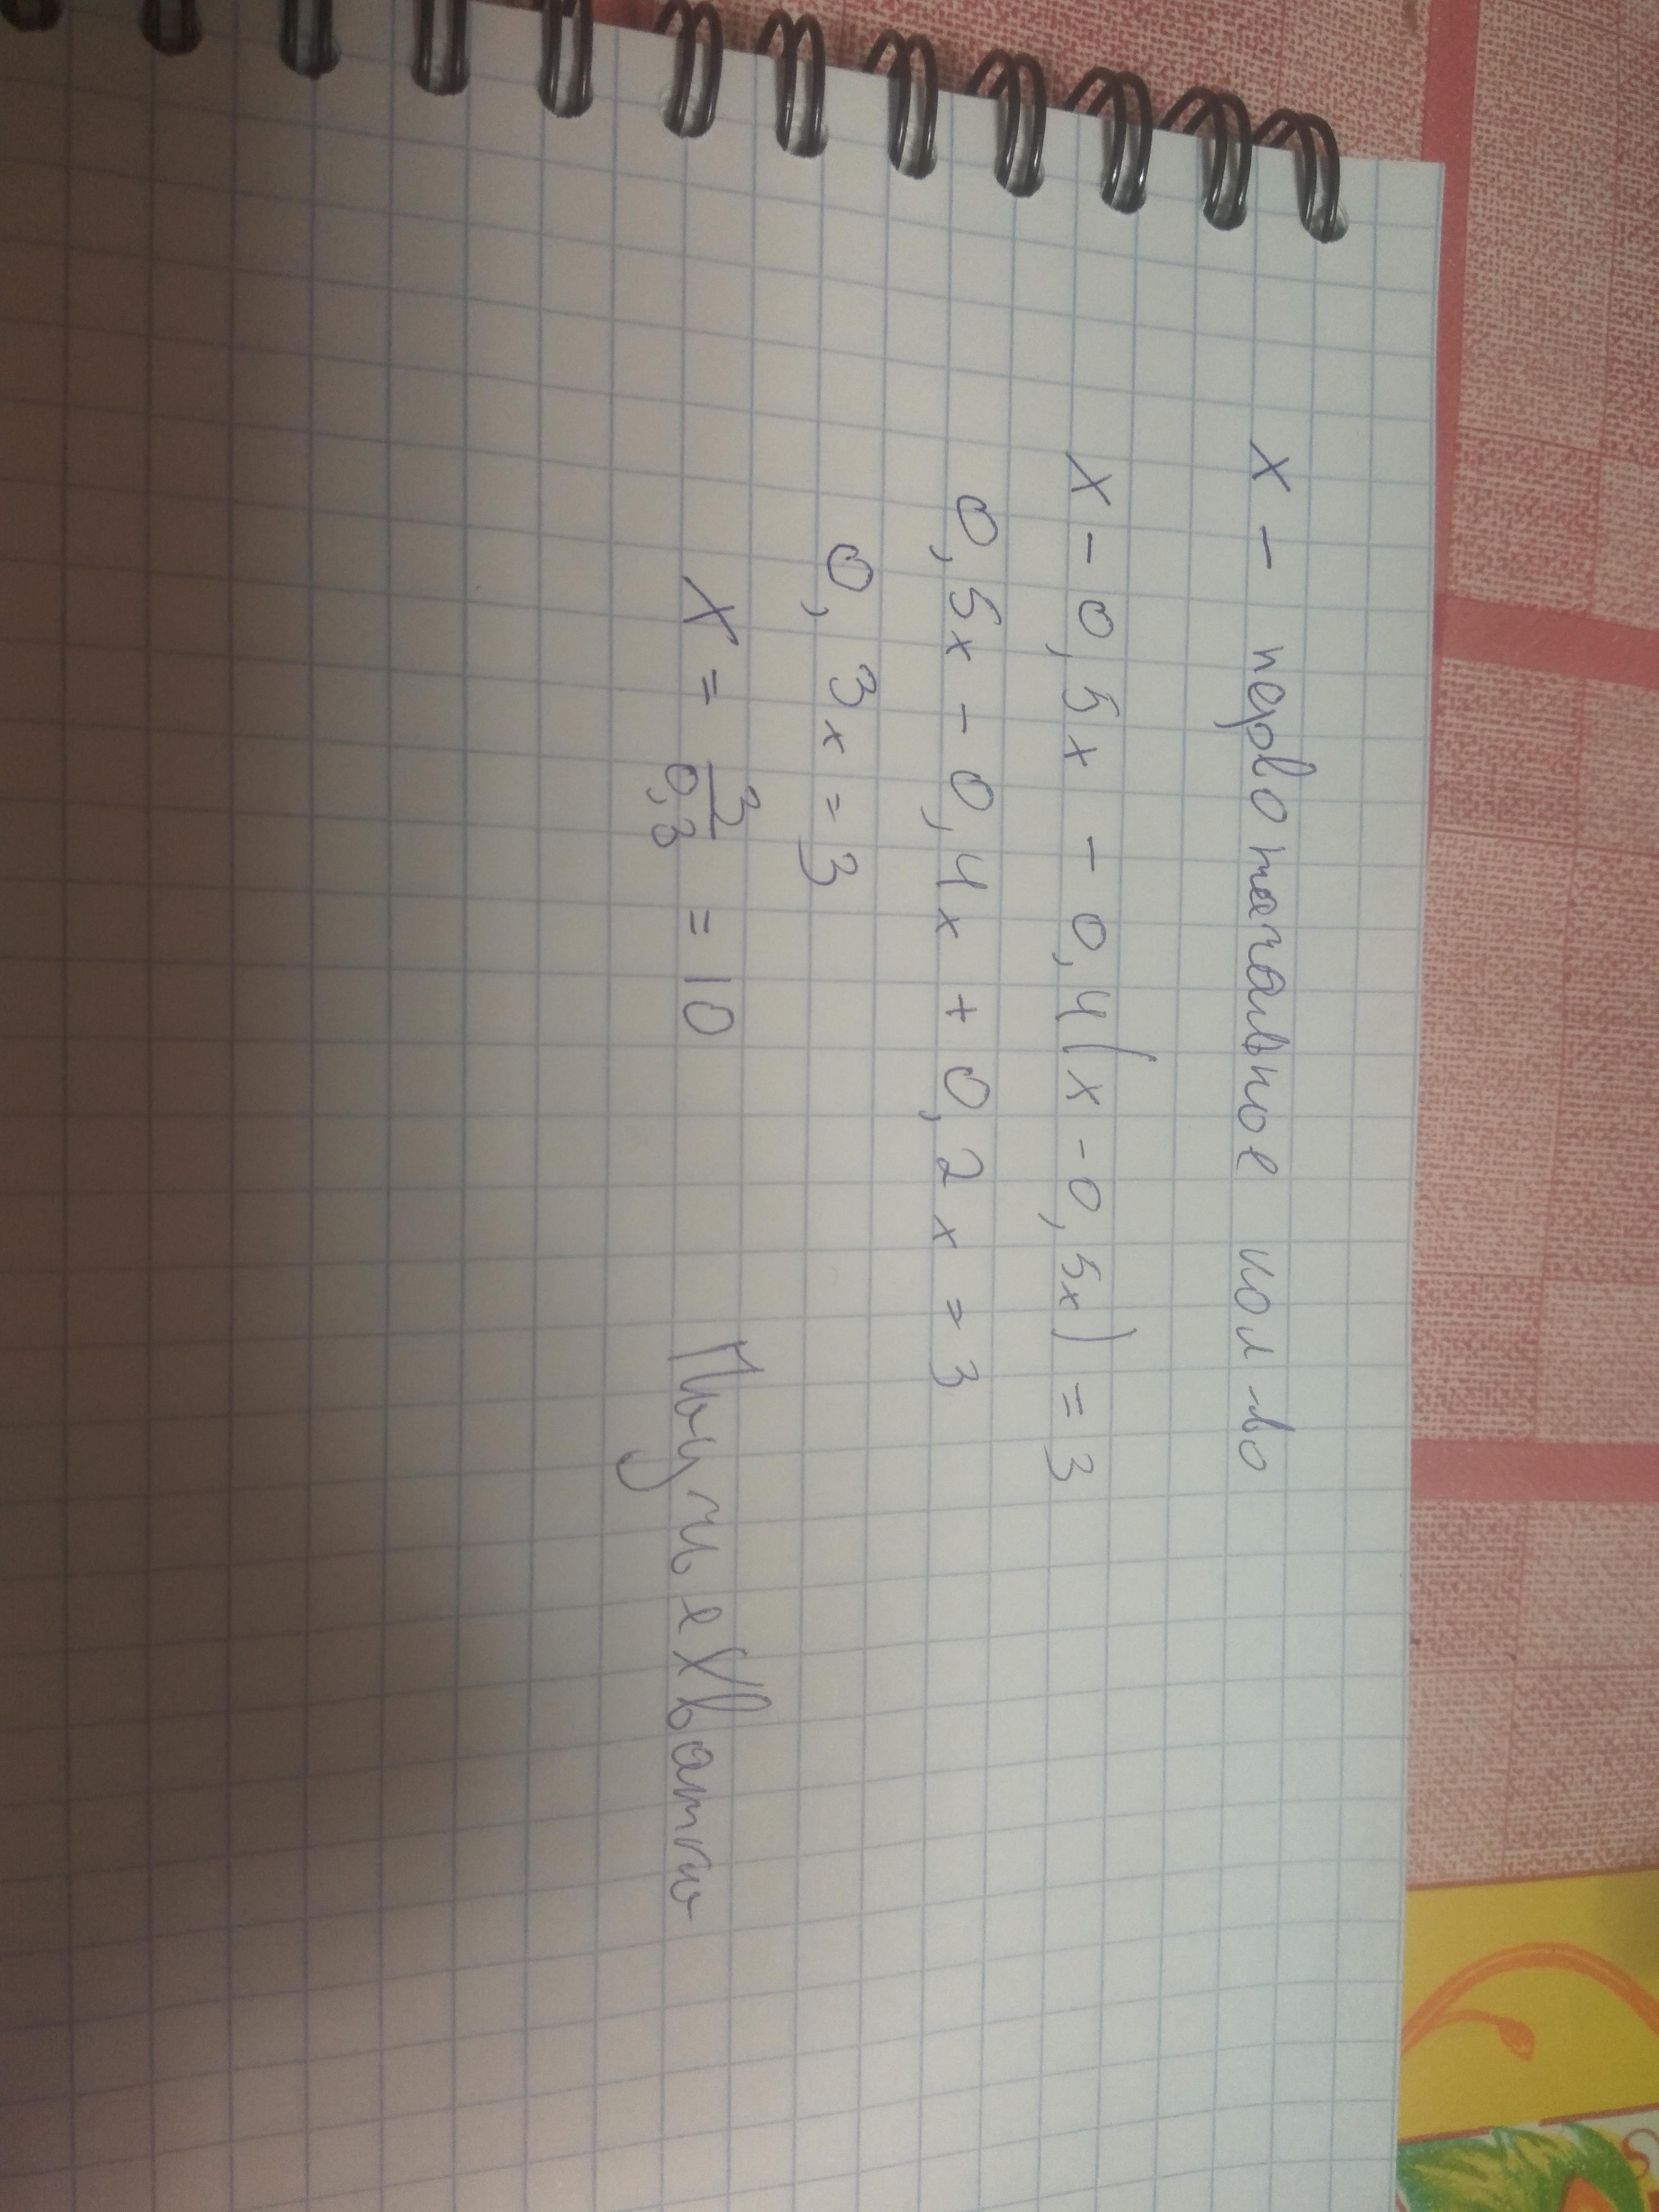 x - первоначальное кол-во
x - 0,5x - 0,4(x - 0,5x) = 3
0,5x - 0,4x + 0,2x = 3
0,3x = 3
x = 3/0,3 = 10